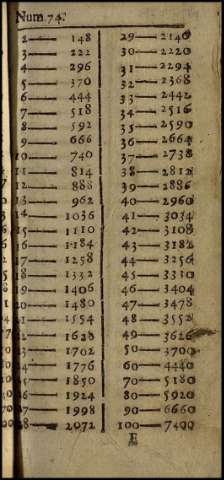 Num. 74.
2 — 148
3 — 222
4 — 296
5 — 370
6 — 444
7 — 518
8 — 592
9 — 666
10 — 740
11 — 814
12 — 888
13 — 962
14 — 1036
15 — 1110
16 — 1184
17 — 1258
18 — 1332
19 — 1406
20 — 1480
21 — 1554
22 — 1628
23 — 1702
24 — 1776
25 — 1850
26 — 1924
27 — 1998
28 — 2072
29 — 2146
30 — 2220
31 — 2294
32 — 2368
33 — 2442
34 — 2516
35 — 2590
36 — 2664
37 — 2738
38 — 2812
39 — 2886
40 — 2960
41 — 3034
42 — 3108
43 — 3182
44 — 3256
45 — 3310
46 — 3404
47 — 3478
48 — 3552
49 — 3626
50 — 3700
60 — 4440
70 — 5180
80 — 5920
90 — 6660
100 — 7400
E